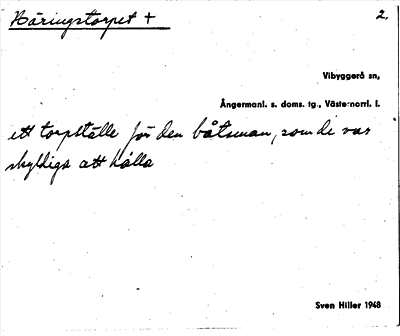 Häringstorpet +
2.
Vibyggerå sn,
Ångermanl. s. doms. tg., Västernorrl. l.
ett torpställe för den båtsman, som de var
skyldiga att hålla
Sven Hiller 1948